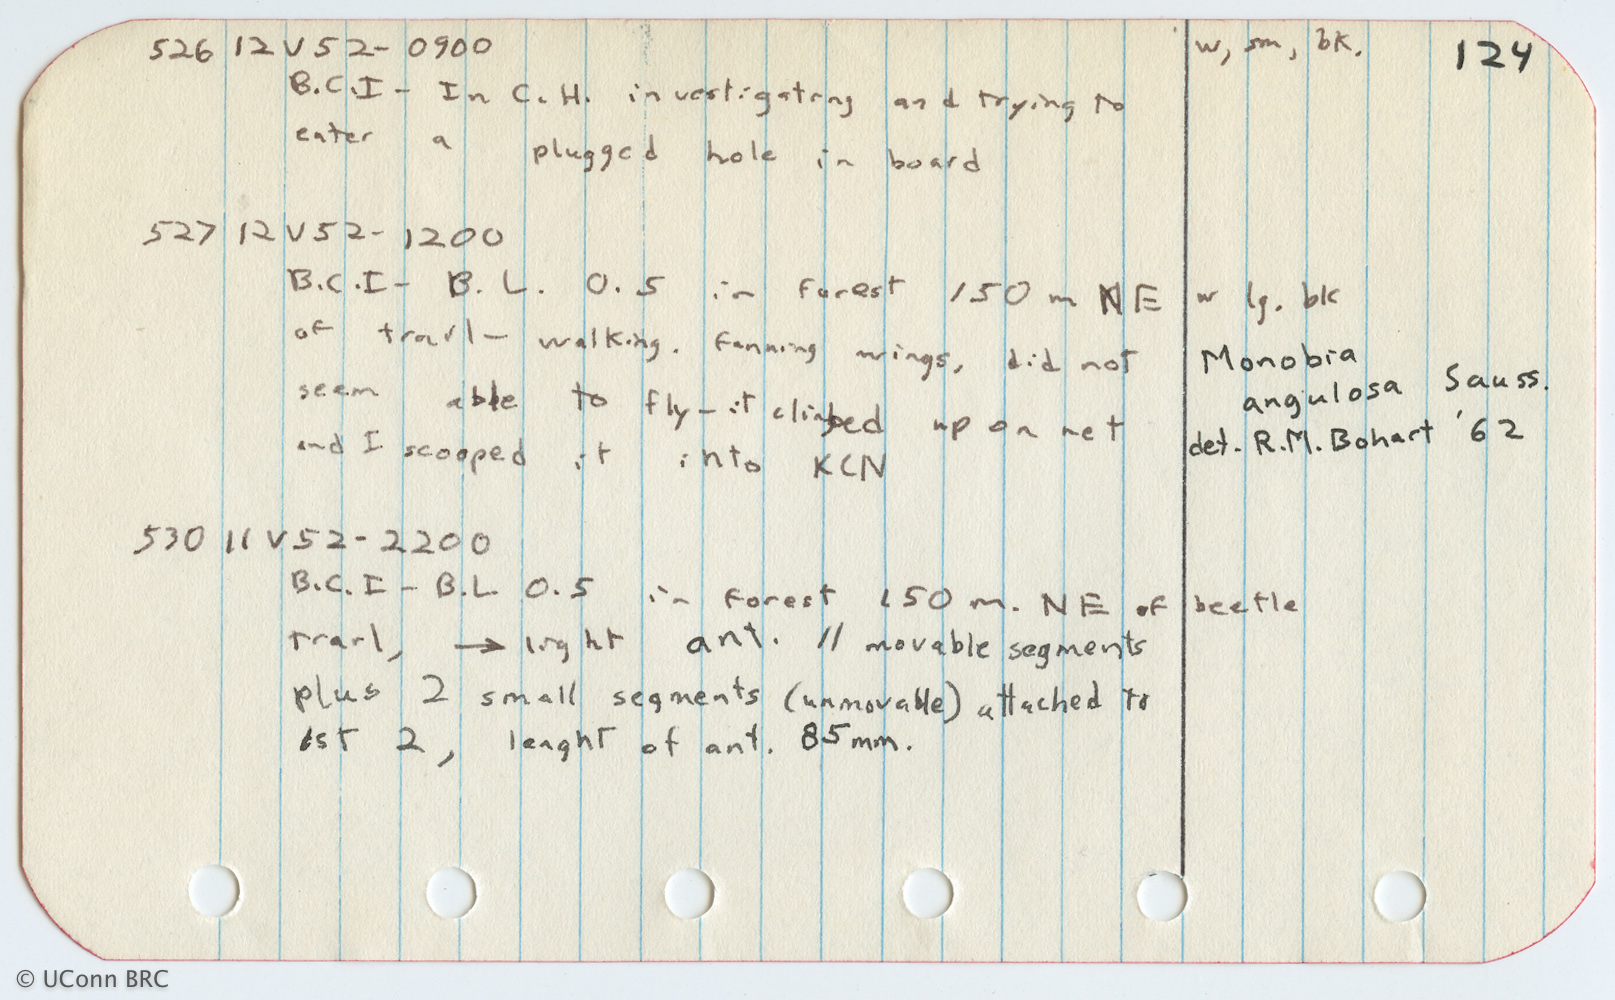 526 12 V 52 - 0900 w, sm, bk. 124
B.C.I - In C.H. investigating and trying to
enter a plugged hole in board
527 12 V 52 - 1200
B.C.I - B.L. 0.5 in forest 150 m NE w lg. bk
of trail - walking. fanning wings, did not Monobia
seem able to fly - it climbed up on net angulosa Sauss.
and I scooped it into KCN det. R.M. Bohart '62
530 11 V 52 - 2200
B.C.I - B.L. 0.5 in forest 150 m. NE of beetle
trail, → light ant. 11 movable segments
plus 2 small segments (unmovable) attached to
1st 2, lenght of ant. 85mm.
© UConn BRC